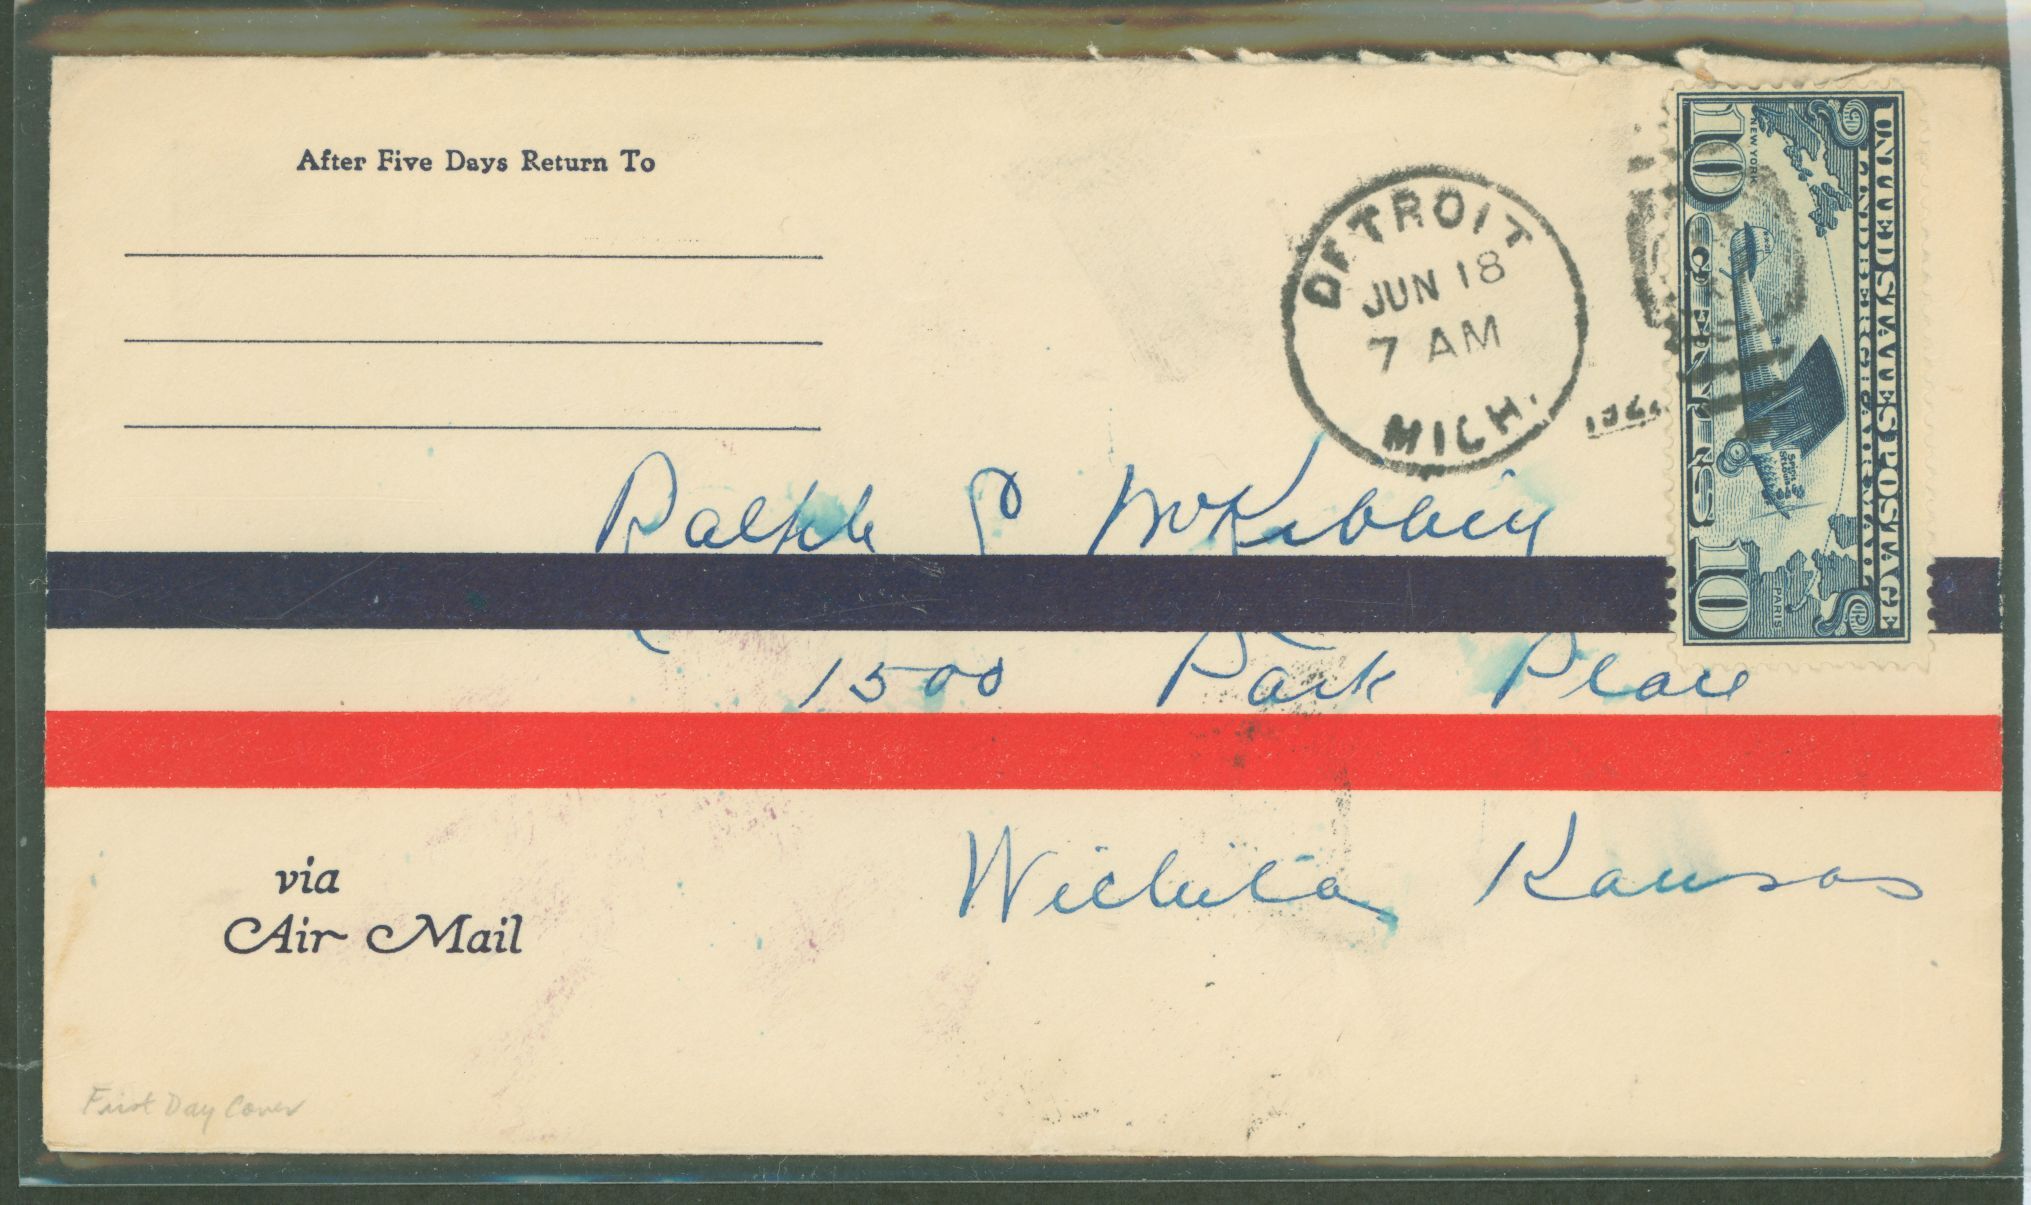 After Five Days Return To
DETROIT
JUN 18
7 AM
MICH.
UNITED STATES POSTAGE
LINDBERGH AIR MAIL
NEW YORK
PARIS
10 CENTS 10
Ralph P McKibbin
1500 Park Place
Wichita Kansas
via
Air Mail
First Day Cover